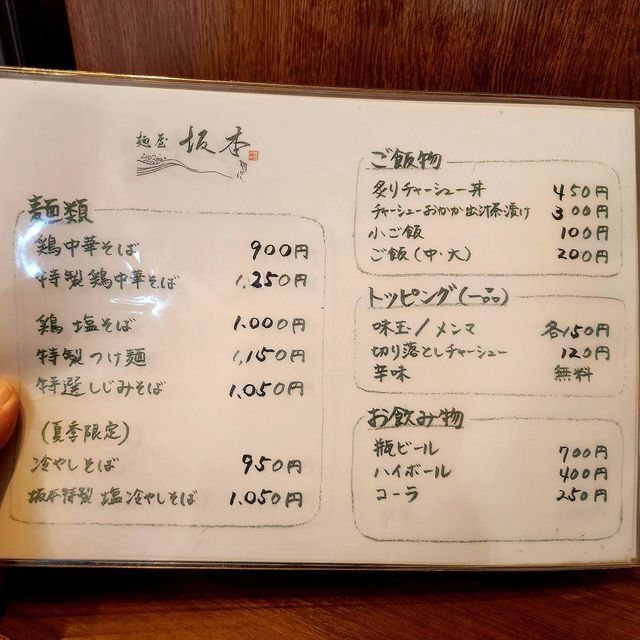 麺屋 坂本
麺類
鶏中華そば 900円
特製鶏中華そば 1,250円
鶏塩そば 1.000円
特製つけ麺 1,150円
特選しじみそば 1,050円
(夏季限定)
冷やしそば 950円
坂本特製 塩冷やしそば 1.050円
ご飯物
炙りチャーシュー丼 450円
チャーシューおかか出汁茶漬け 300円
小ご飯 100円
ご飯(中・大) 200円
トッピング(一品)
味玉/メンマ 各150円
切り落としチャーシュー 120円
辛味 無料
お飲み物
瓶ビール 700円
ハイボール 400円
コーラ 250円